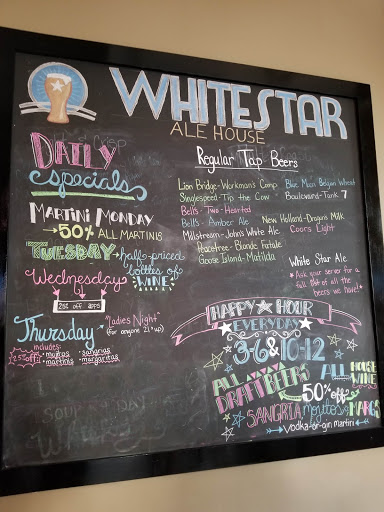 WHITESTAR
ALE HOUSE
DAILY
specials
MARTINI MONDAY
→50% ALL MARTINIS
TUESDAY half-priced
bottles of
WINE
Wednesday
25% off apps
Thursday "Ladies Night"
(for anyone 21 & up)
includes:
25% off! • mules • sangrias
• martinis • margaritas
Regular Tap Beers
Lion Bridge-Workman's Comp Blue Moon Belgian Wheat
Singlespeed-Tip the Cow Boulevard-Tank 7
Bells-Two-Hearted
Bells-Amber Ale New Holland-Dragons Milk
Millstream-John's White Ale Coors Light
Peacetree-Blonde Fatale
Goose Island-Matilda
White Star Ale
*Ask your server for a
full list of all the
beers we have!*
HAPPY HOUR
EVERYDAY
3-6 & 10-12
ALL DRAFT BEERS
ALL HOUSE WINE
50% off
SANGRIA mojitos & MARGS
vodka-or-gin martini